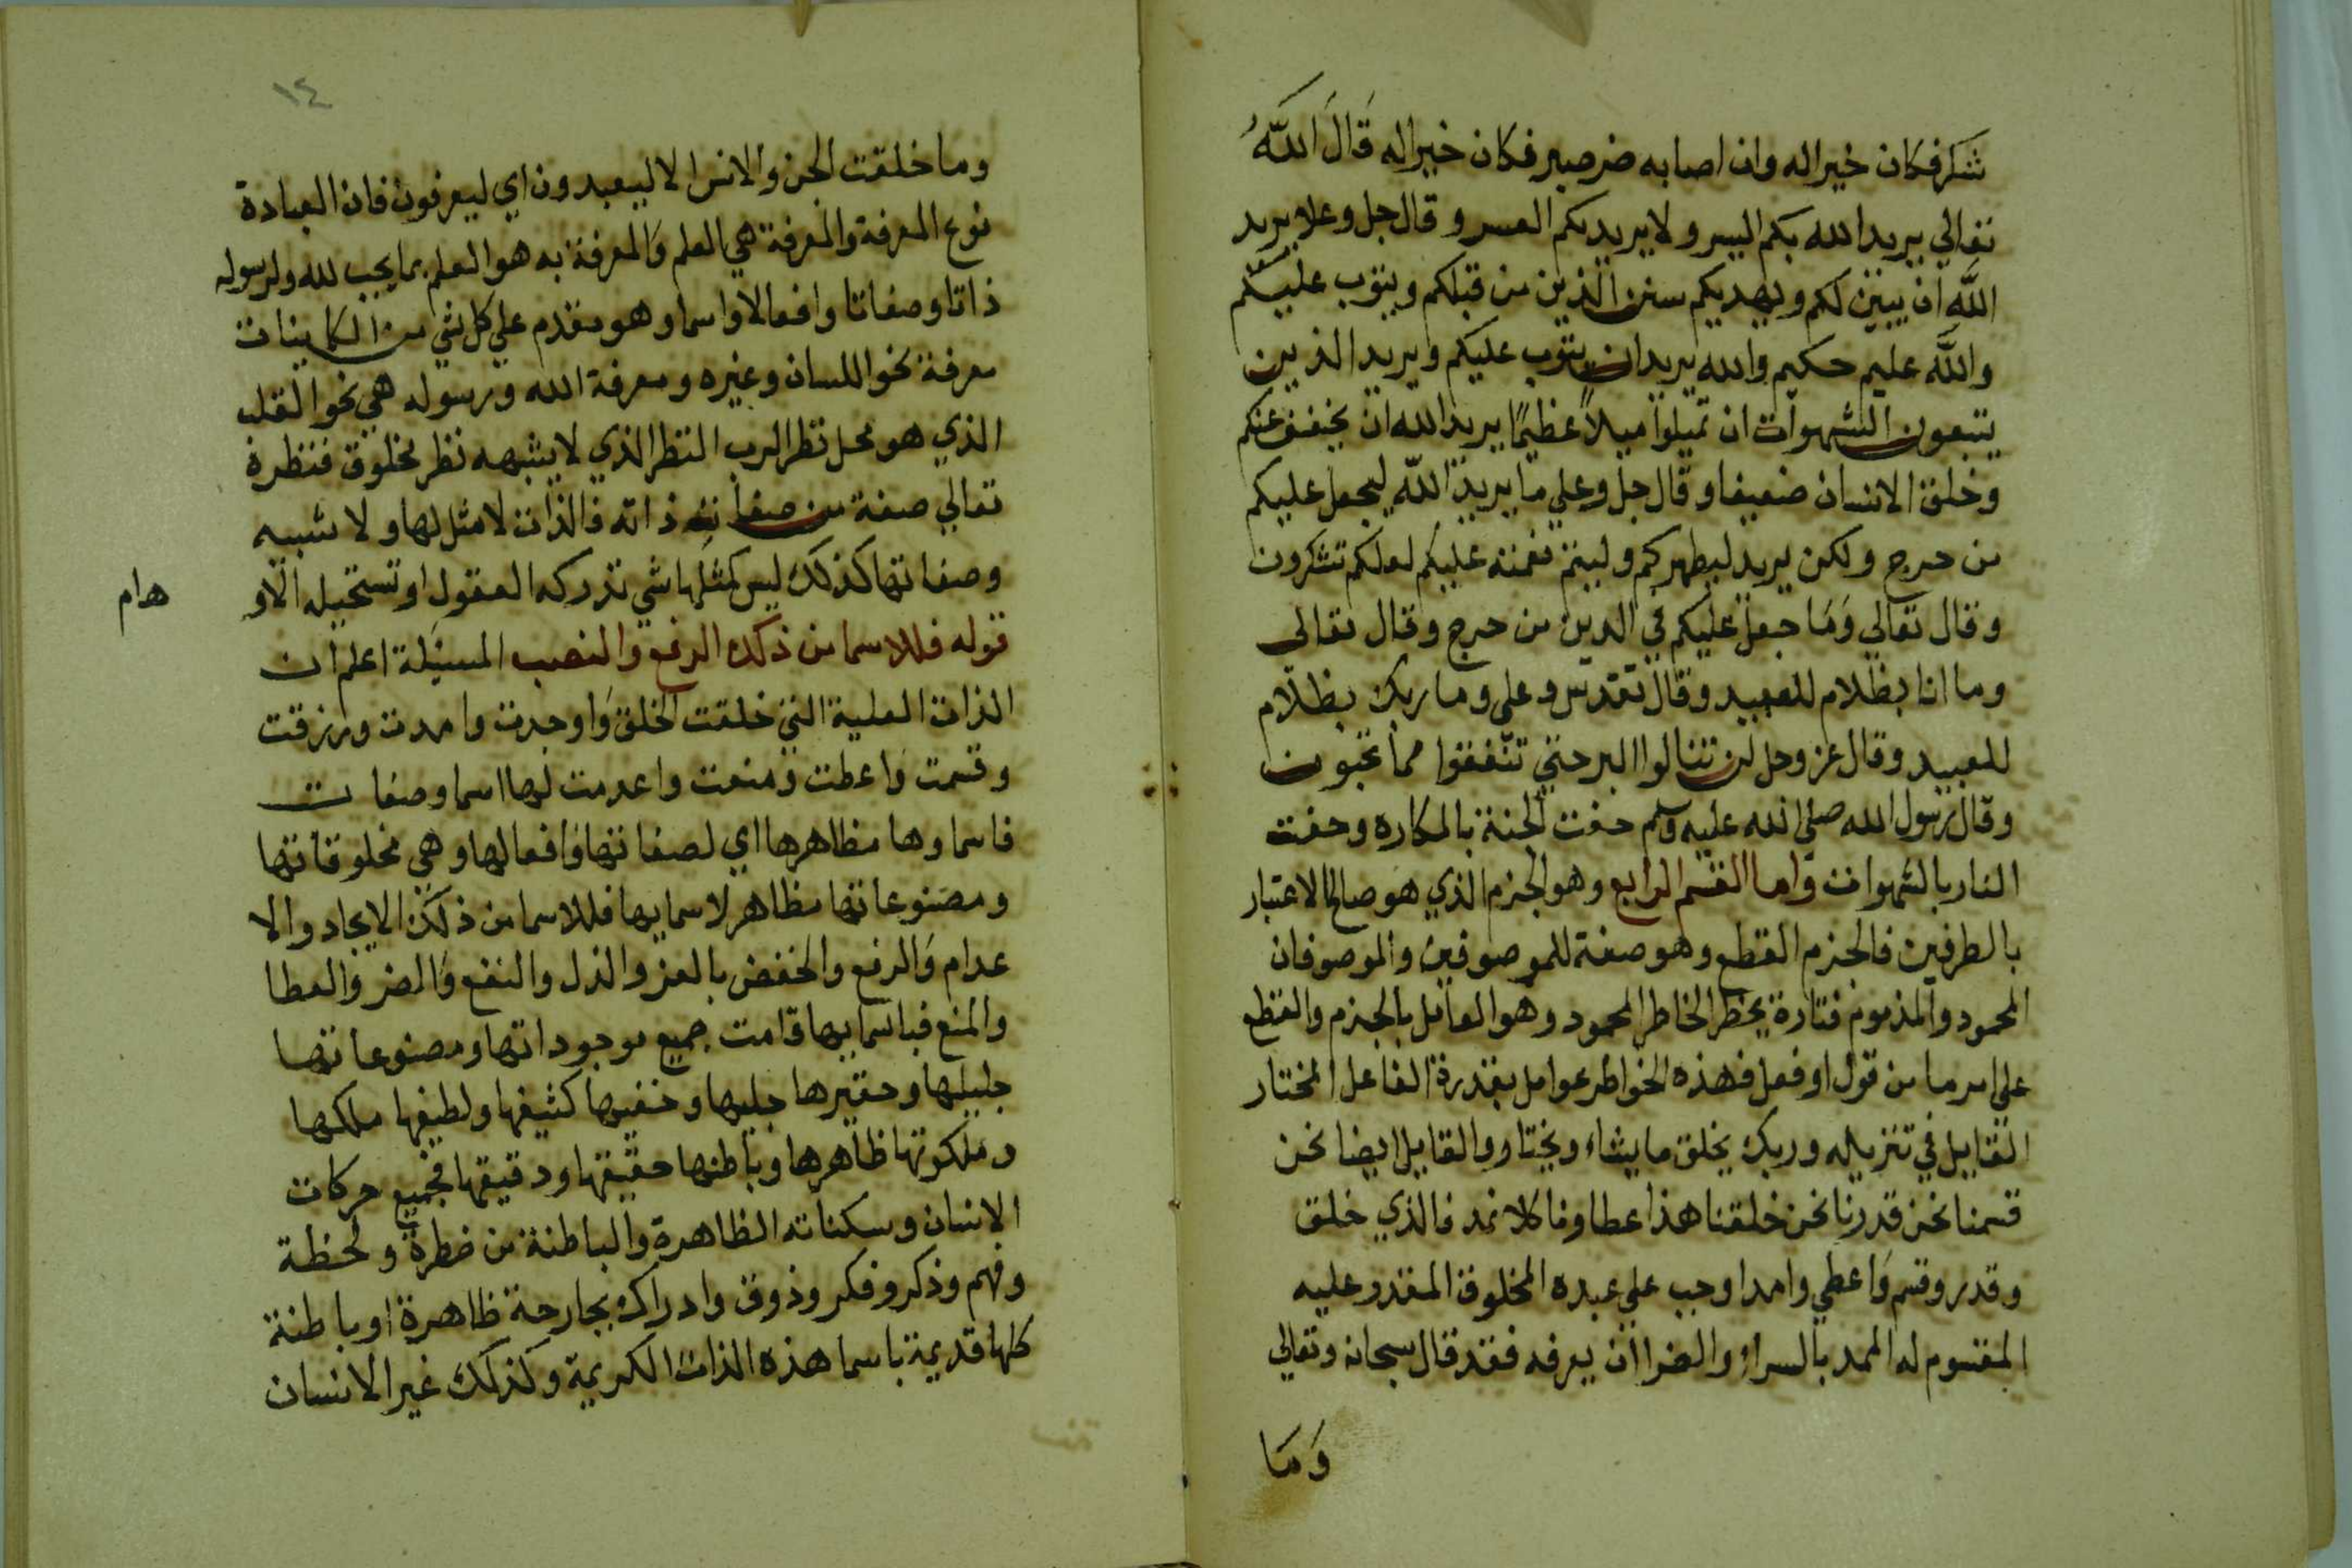 شكر فكان خيرا له وان اصابه ضر صبر فكان خيرا له قَالَ اللَّهُ
تعالي يريد الله بكم اليسر ولا يريد بكم العسر وقال جل وعلا يريد
اللَّه ان يبين لكم ويهديكم سنن الذين من قبلكم ويتوب عليكم
واللَّه عليم حكيم والله يريد ان يتوب عليكم ويريد الذين
يتبعون الشهوات ان تميلوا ميلاً عظيمًا يريد الله ان يخفف عنكم
وخلق الانسان ضعيفا وقال جل وعلي ما يريد اللّه ليجعل عليكم
من حرج ولكن يريد ليطهركم وليتم نعمته عليكم لعلكم تشكرون
وقال تعالي وَمَا جعل عليكم في الدين من حرج وقال تعالى
وما انا بظلام للعبيد وقال تقدس وعلي وما ربك بظلّام
للعبيد وقال عز وجل لن تنالوا البر حتي تنفقوا مما تحبون
وقال رسول الله صلي الله عليه وسلم حفت الجنة بالمكاره وحفت
النار بالشهوات واما القسم الرابع وهو الجزم الذي هو صالح الاعتبار
بالطرفين فالجزم القطع وهو صفة للموصوفين والموصوفان
المحمود والمذموم فتارة يخطر الخاطر المحمود وهو العامل بالجزم والقطع
على امر ما من قول او فعل فهذه الخواطر عوامل بقدرة الفاعل المختار
القايل في تنزيله وربك يخلق ما يشاء ويختار والقايل ايضا نحن
قسمنا نحن قدرنا نحن خلقنا هذا عطاونا كلا نمد فالذي خلق
وقدر وقسم وَاعطي وامد اوجب علي عبده المخلوق المقدر عليه
المقسوم له الممد بالسراء والضرا ان يعرفه فقد قال سبحانه وتعالي
وَمَا
١٤
وما خلقت الجن والانس الا ليعبدون اي ليعرفون فان العبادة
نوع المعرفة والمعرفة هي العلم وَالمعرفة به هو العلم بما يجب لله ولرسوله
ذاتا وصفاتا وافعالا واسما وهو مقدم علي كل شي من الكاينات
معرفة نحو اللسان وغيره ومعرفة الله ورسوله هي نحو القلب
الذي هو محل نظر الرب النظر الذي لا يشبهه نظر مخلوق فنظره
تعالي صفة من صفات ذاته فالذات لا مثل لها ولا شبيه
وصفاتها كذلك ليس كمثلها شي تدركه العقول او تستحيله الاو
هام
قوله فللاسما من ذلك الرفع والنصب المسيلة اعلم ان
الذات العلية التي خلقت الخلق وَاوجدت وامدت ورزقت
وقسمت واعطت ومنعت واعدمت لها اسما وصفات
فاسماوها مظاهرها اي لصفاتها وَافعالها وهي مخلوقاتها
ومصنوعاتها مظاهر لاسمايها فللاسما من ذلك الايجاد والا
عدام وَالرفع والخفض بالعز والذل والنفع وَالضر وَالعطا
والمنع فباسمايها قامت جميع موجوداتها ومصنوعاتها
جليلها وحقيرها جليها وخفيها كثيفها ولطيفها ملكها
وملكوتها ظاهرها وباطنها حقيقها ودقيقها فجميع حركات
الانسان وسكناته الظاهرة والباطنة من خطرة ولحظة
وفهم وذكر وفكر وذوق وادراك بجارحة ظاهرة او باطنة
كلها قديمة باسما هذه الذات الكريمة وكذلك غير الانسان